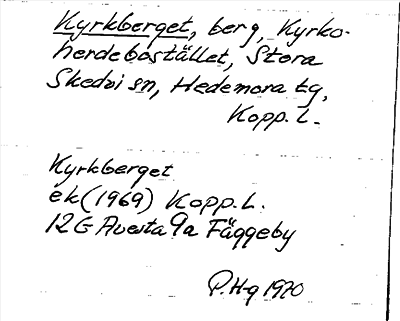 Kyrkberget, berg, Kyrko-
herdebostället, Stora
Skedvi sn, Hedemora tg,
Kopp. L.
Kyrkberget
ek (1969) Kopp. L.
12G Avesta 9a Fäggeby
P.Hg 1970